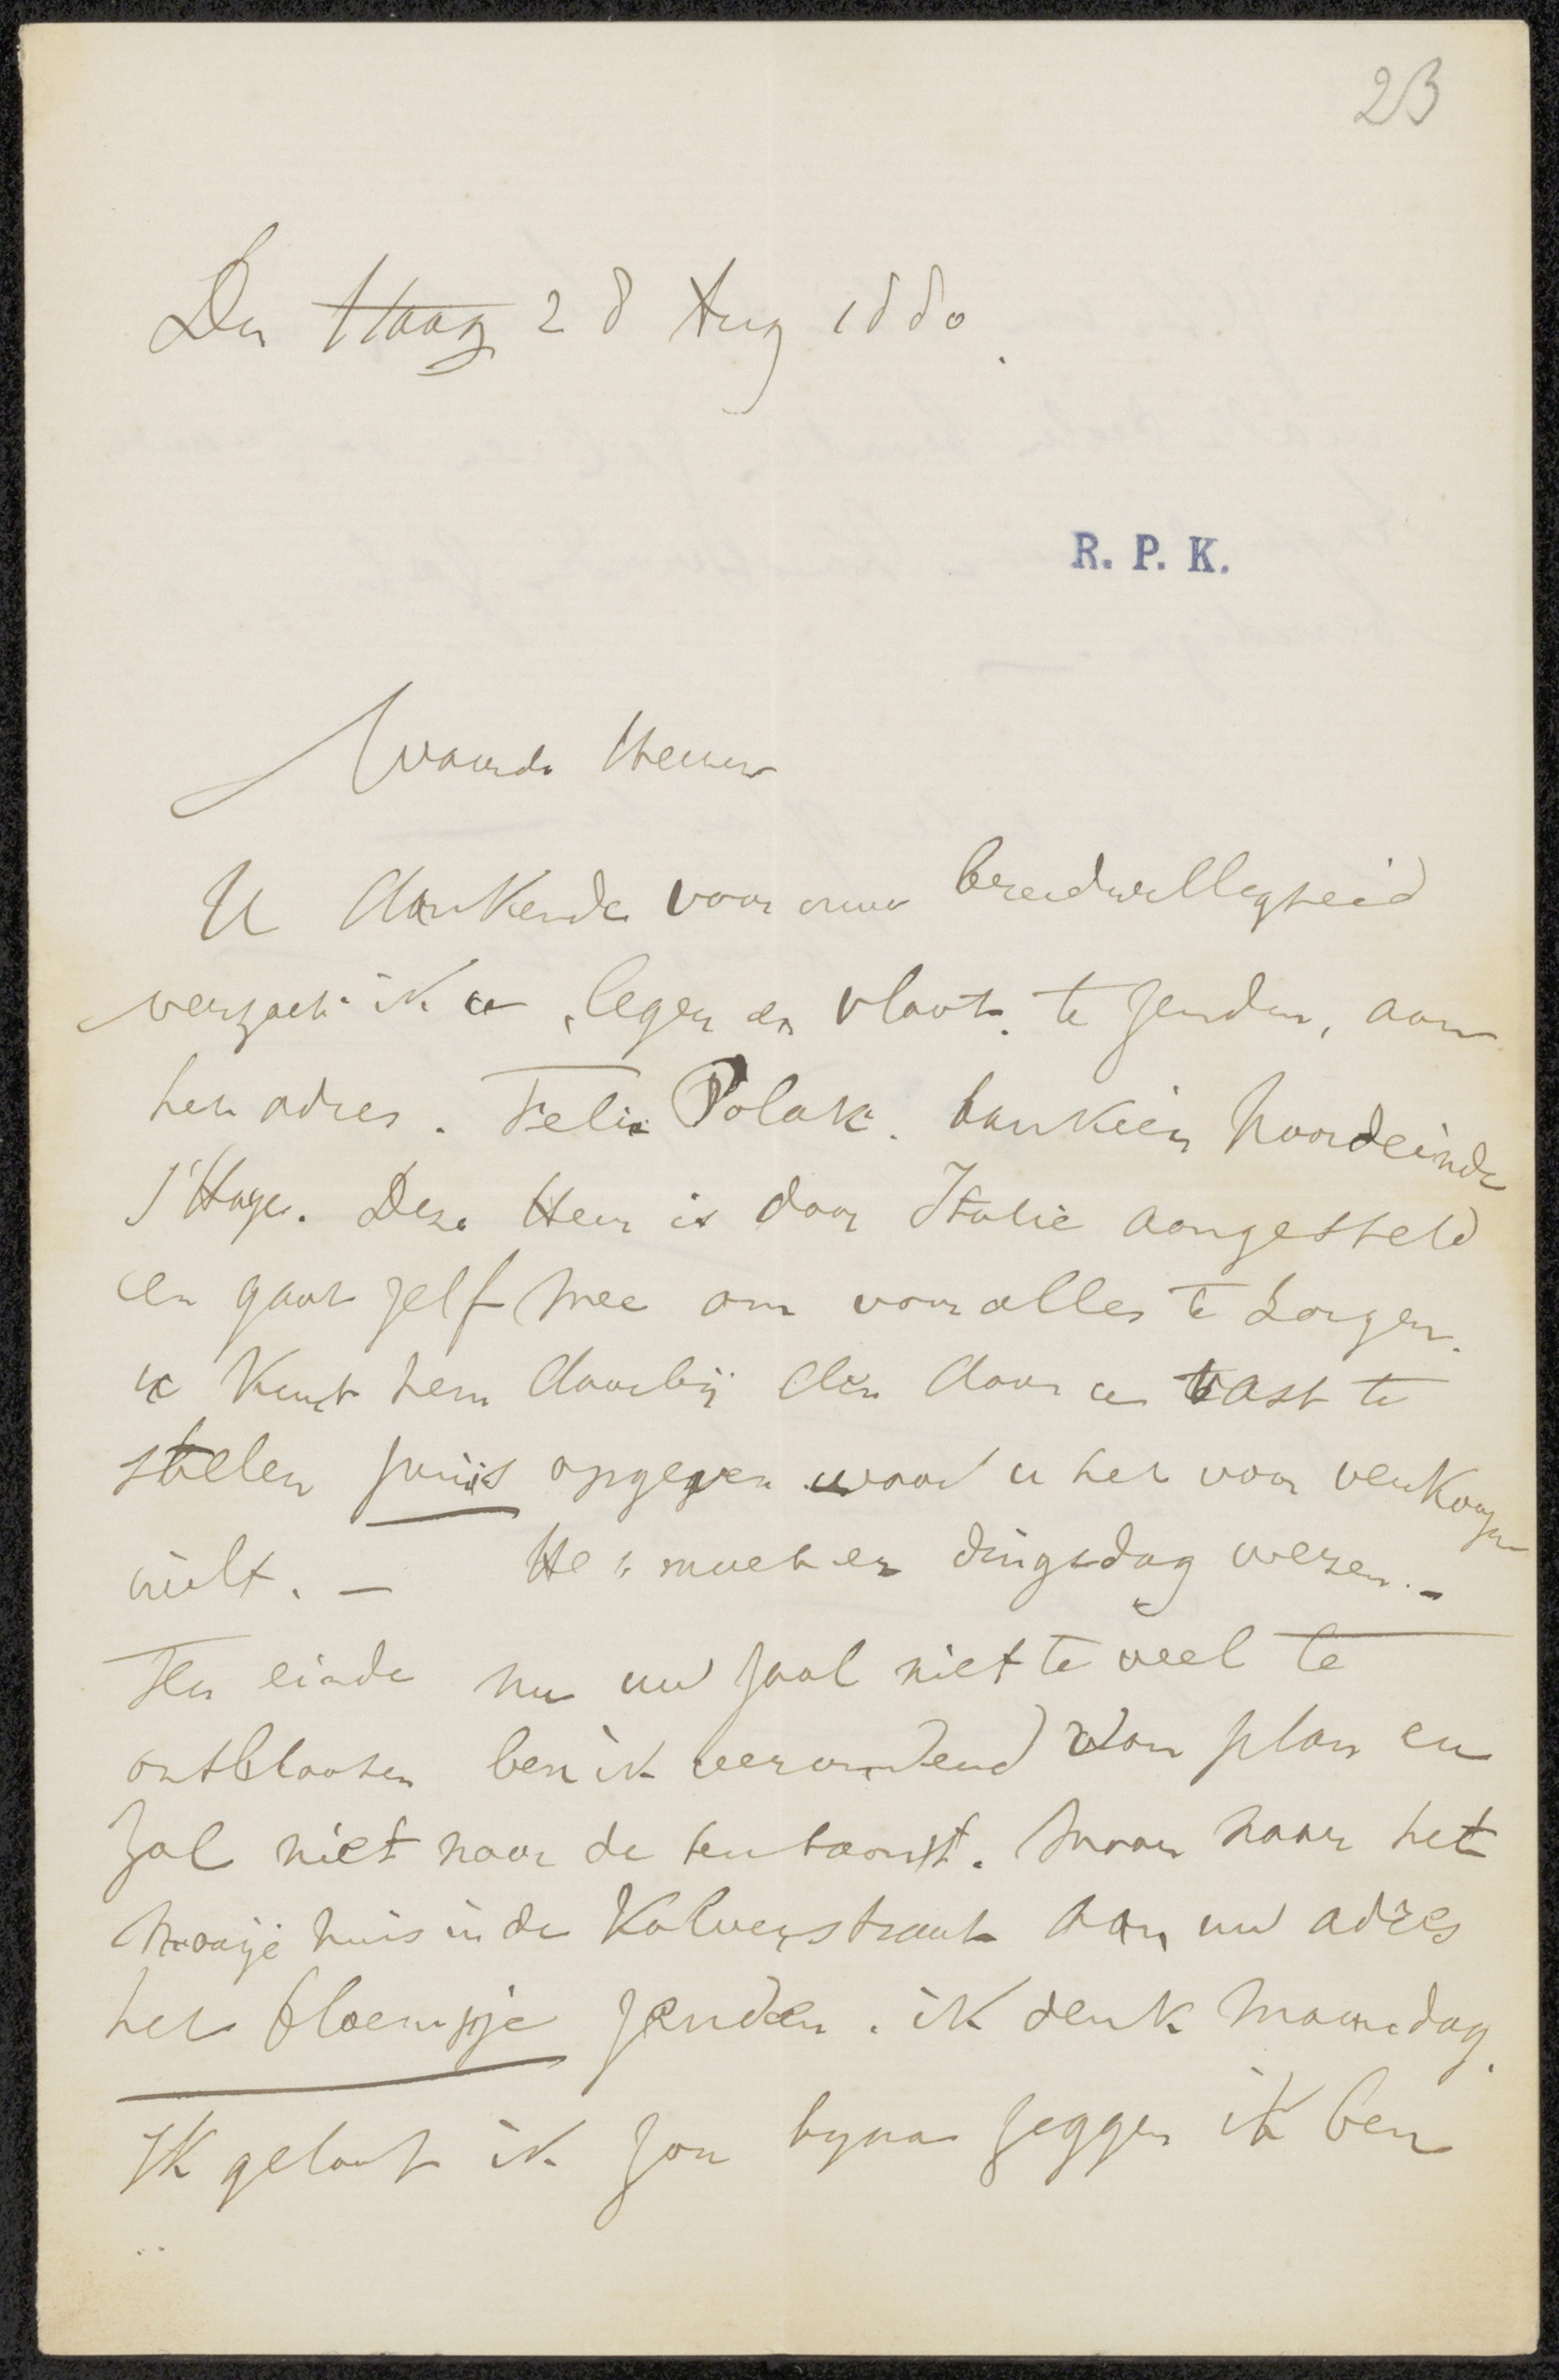 23
Den Haag 28 Aug 1880.
R. P. K.
Waarde Heeren
U dankende voor uwe bereidwilligheid
verzoek ik u "leger en vloot" te zenden, aan
het adres. Felix Polak. bankier Noordeinde
s'Hage. Deze Heer is door Italie aangesteld
en gaat zelf mee om voor alles te zorgen.
u kunt hem daarbij den door u vast te
stellen prijs opgegeven waar u het voor verkoopen
wilt. — Het moet er dingsdag wezen. —
Ten einde nu uw zaal niet te veel te
ontblooten ben ik veranderd van plan en
zal niet naar de tentoonst. maar naar het
mooije huis in de Kalverstraat aan uw adres
het bloempje zenden. ik denk maandag.
Ik geloof ik zou byna zeggen ik ben